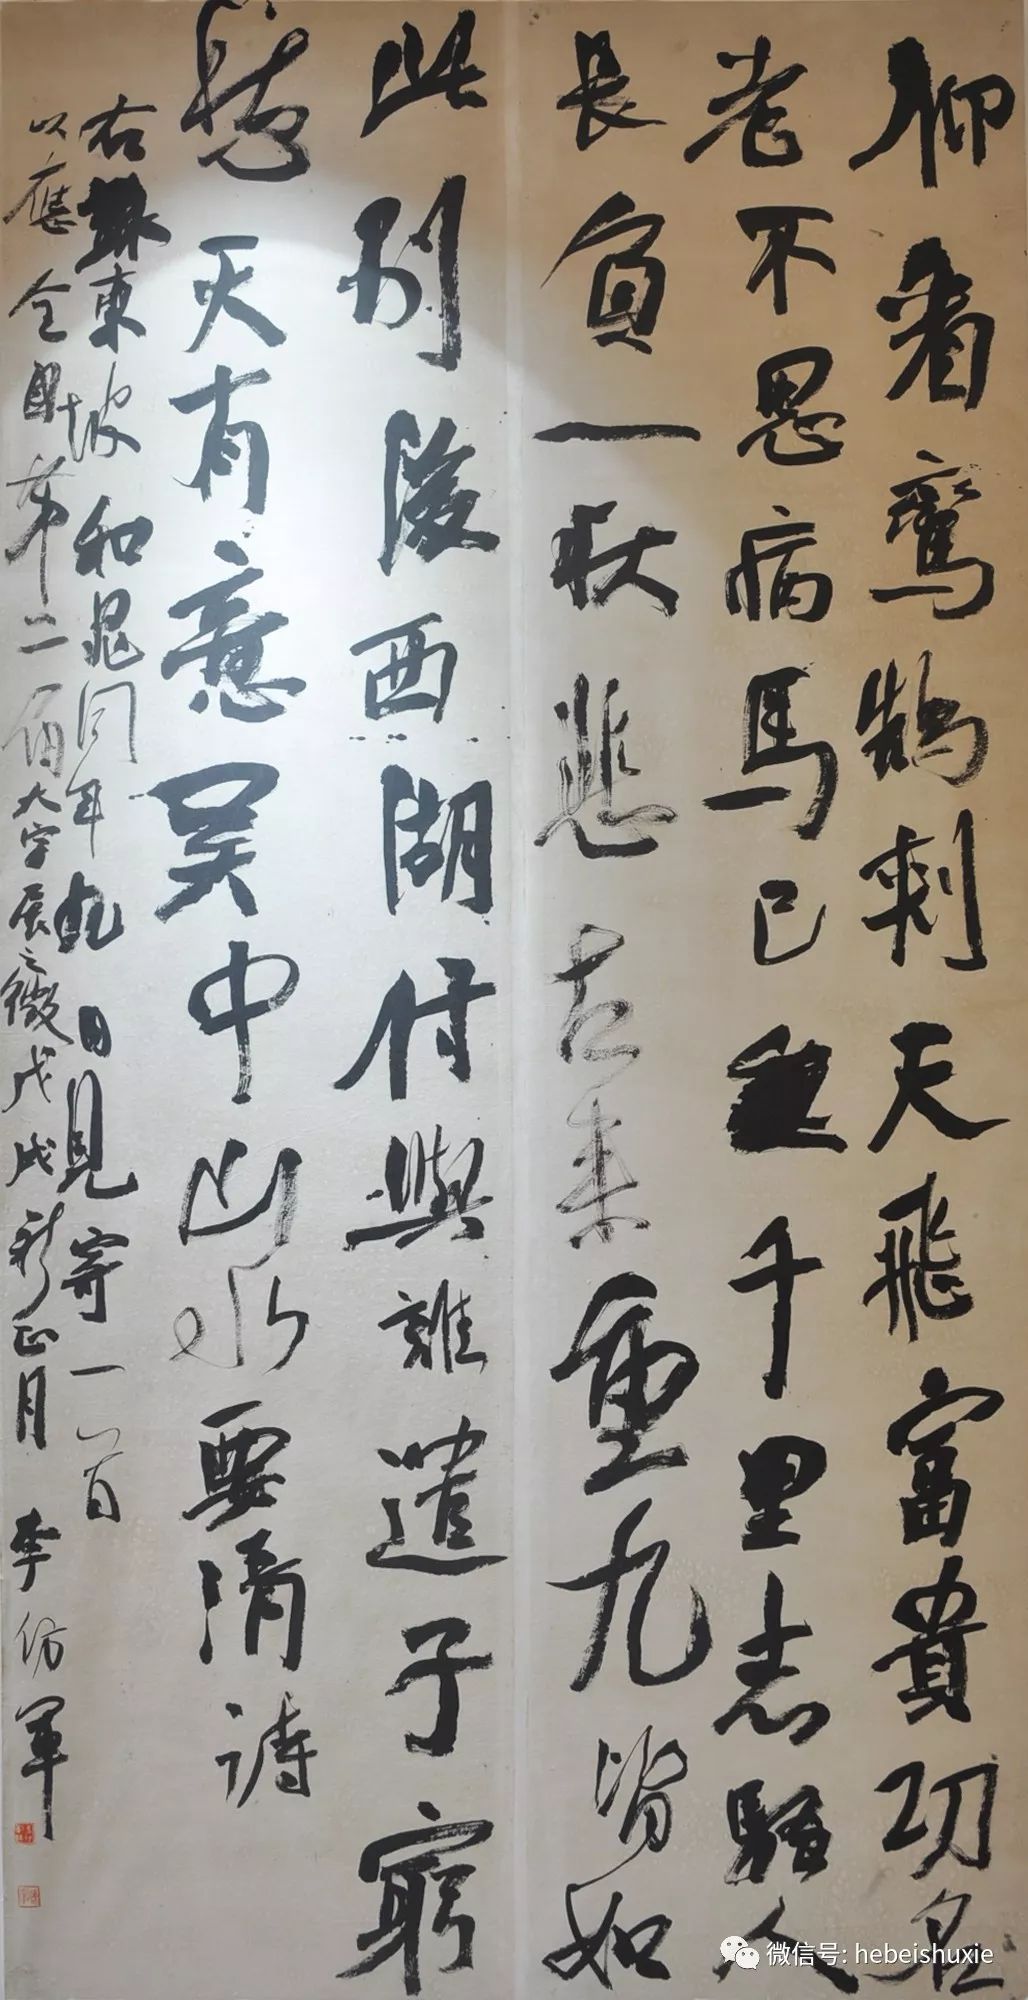 仰看鸞鵠刺天飛富貴功名
老不思病馬已無千里志騷人
長負一秋悲古來重九皆如
此別後西湖付與誰遣子窮
愁天有意吳中山水要清詩
右蘇東坡和晁同年九日見寄一首
以應全國第二屆大字展之徵戊戌新正月李仿軍
微信号: hebeishuxie